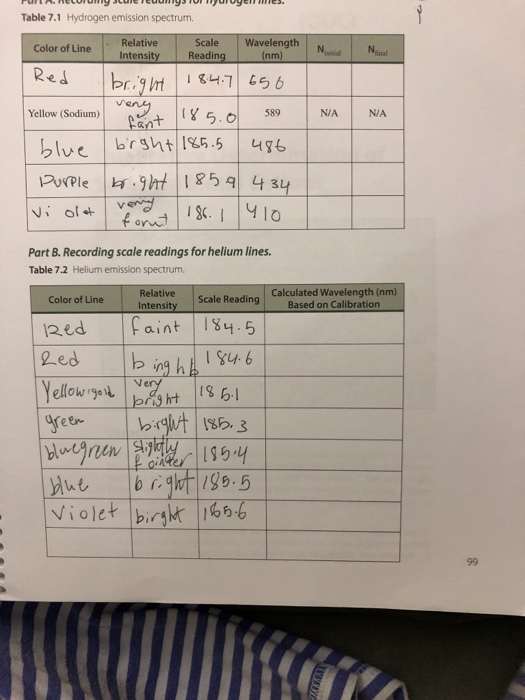 Table 7.1 Hydrogen emission spectrum.
Color of Line Relative Intensity Scale Reading Wavelength (nm) N initial N final
Red bright 184.7 656
Yellow (Sodium) very fant 185.0 589 N/A N/A
blue brght 185.5 486
Purple bright 1859 434
Violet very font 186.1 410
Part B. Recording scale readings for helium lines.
Table 7.2 Helium emission spectrum.
Color of Line Relative Intensity Scale Reading Calculated Wavelength (nm) Based on Calibration
Red faint 184.5
Red binght 184.6
Yellow gold Very bright 185.1
green birght 185.3
bluegreen slightly fointer 185.4
blue bright 185.5
Violet birght 185.6
99